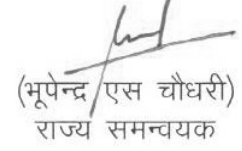 (भूपेन्द्र एस चौधरी)
राज्य समन्वयक